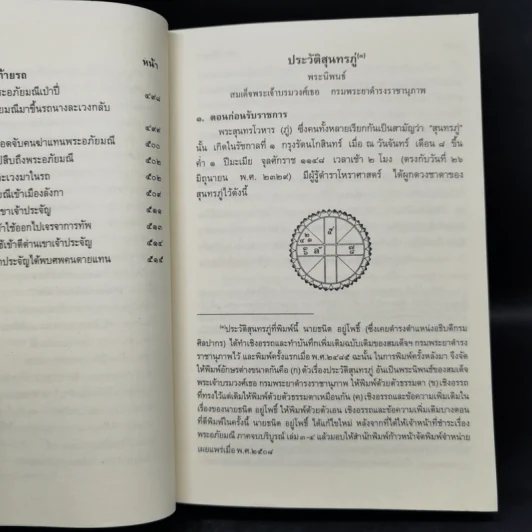 หน้า
ท้ายรถ
ะอภัยมณีเป่าปี่ ๔๙๘
ัยมณีมาขึ้นรถนางละเวงกลับ
๔๙๙
อดจับคนฆ่าแทนพระอภัยมณี ๕๐๐
ปสืบถึงพระอภัยมณี ๕๐๕
ะเวงมาในรถ ๕๐๙
ณีเข้าเมืองลังกา ๕๐๙
ขาเจ้าประจัญ ๕๑๑
ใช้ออกไปเจรจาการทัพ ๕๑๓
ช้เข้าตีด่านเขาเจ้าประจัญ ๕๑๔
าประจัญได้พบศพคนตายแทน ๕๑๕
ประวัติสุนทรภู่(๑)
พระนิพนธ์
สมเด็จพระเจ้าบรมวงศ์เธอ กรมพระยาดำรงราชานุภาพ
๑. ตอนก่อนรับราชการ
พระสุนทรโวหาร (ภู่) ซึ่งคนทั้งหลายเรียกกันเป็นสามัญว่า "สุนทรภู่"
นั้น เกิดในรัชกาลที่ ๑ กรุงรัตนโกสินทร์ เมื่อ ณ วันจันทร์ เดือน ๘ ขึ้น
ค่ำ ๑ ปีมะเมีย จุลศักราช ๑๑๔๘ เวลาเช้า ๒ โมง (ตรงกับวันที่ ๒๖
มิถุนายน พ.ศ. ๒๓๒๙) มีผู้รู้ตำราโหราศาสตร์ ได้ผูกดวงชาตาของ
สุนทรภู่ไว้ดังนี้
(๑)ประวัติสุนทรภู่ที่พิมพ์นี้ นายธนิต อยู่โพธิ์ (ซึ่งเคยดำรงตำแหน่งอธิบดีกรม
ศิลปากร) ได้ทำเชิงอรรถและทำบันทึกเพิ่มเติมฉบับเดิมของสมเด็จฯ กรมพระยาดำรง
ราชานุภาพไว้ และพิมพ์ครั้งแรกเมื่อ พ.ศ.๒๔๘๕ ฉะนั้น ในการพิมพ์ครั้งหลังมา จึงจัด
ให้พิมพ์อักษรต่างขนาดกันคือ (ก) ตัวเรื่องประวัติสุนทรภู่ อันเป็นพระนิพนธ์ของสมเด็จ
พระเจ้าบรมวงศ์เธอ กรมพระยาดำรงราชานุภาพ ให้พิมพ์ด้วยตัวธรรมดา (ข) เชิงอรรถ
ที่ทรงไว้แต่เดิมให้พิมพ์ด้วยตัวธรรมดาเหมือนกัน (ค) เชิงอรรถและข้อความเพิ่มเติมใน
เรื่องของนายธนิต อยู่โพธิ์ ให้พิมพ์ด้วยตัวเอน เชิงอรรถและข้อความเพิ่มเติมบางตอน
ที่ตีพิมพ์ในครั้งนี้ นายธนิต อยู่โพธิ์ ได้แก้ไขใหม่ หลังจากที่ได้ให้เจ้าหน้าที่ชำระเรื่อง
พระอภัยมณี ภาคจบบริบูรณ์ เล่ม ๓-๔ แล้วมอบให้สำนักพิมพ์ก้าวหน้าจัดพิมพ์จำหน่าย
เผยแพร่เมื่อ พ.ศ.๒๕๐๘